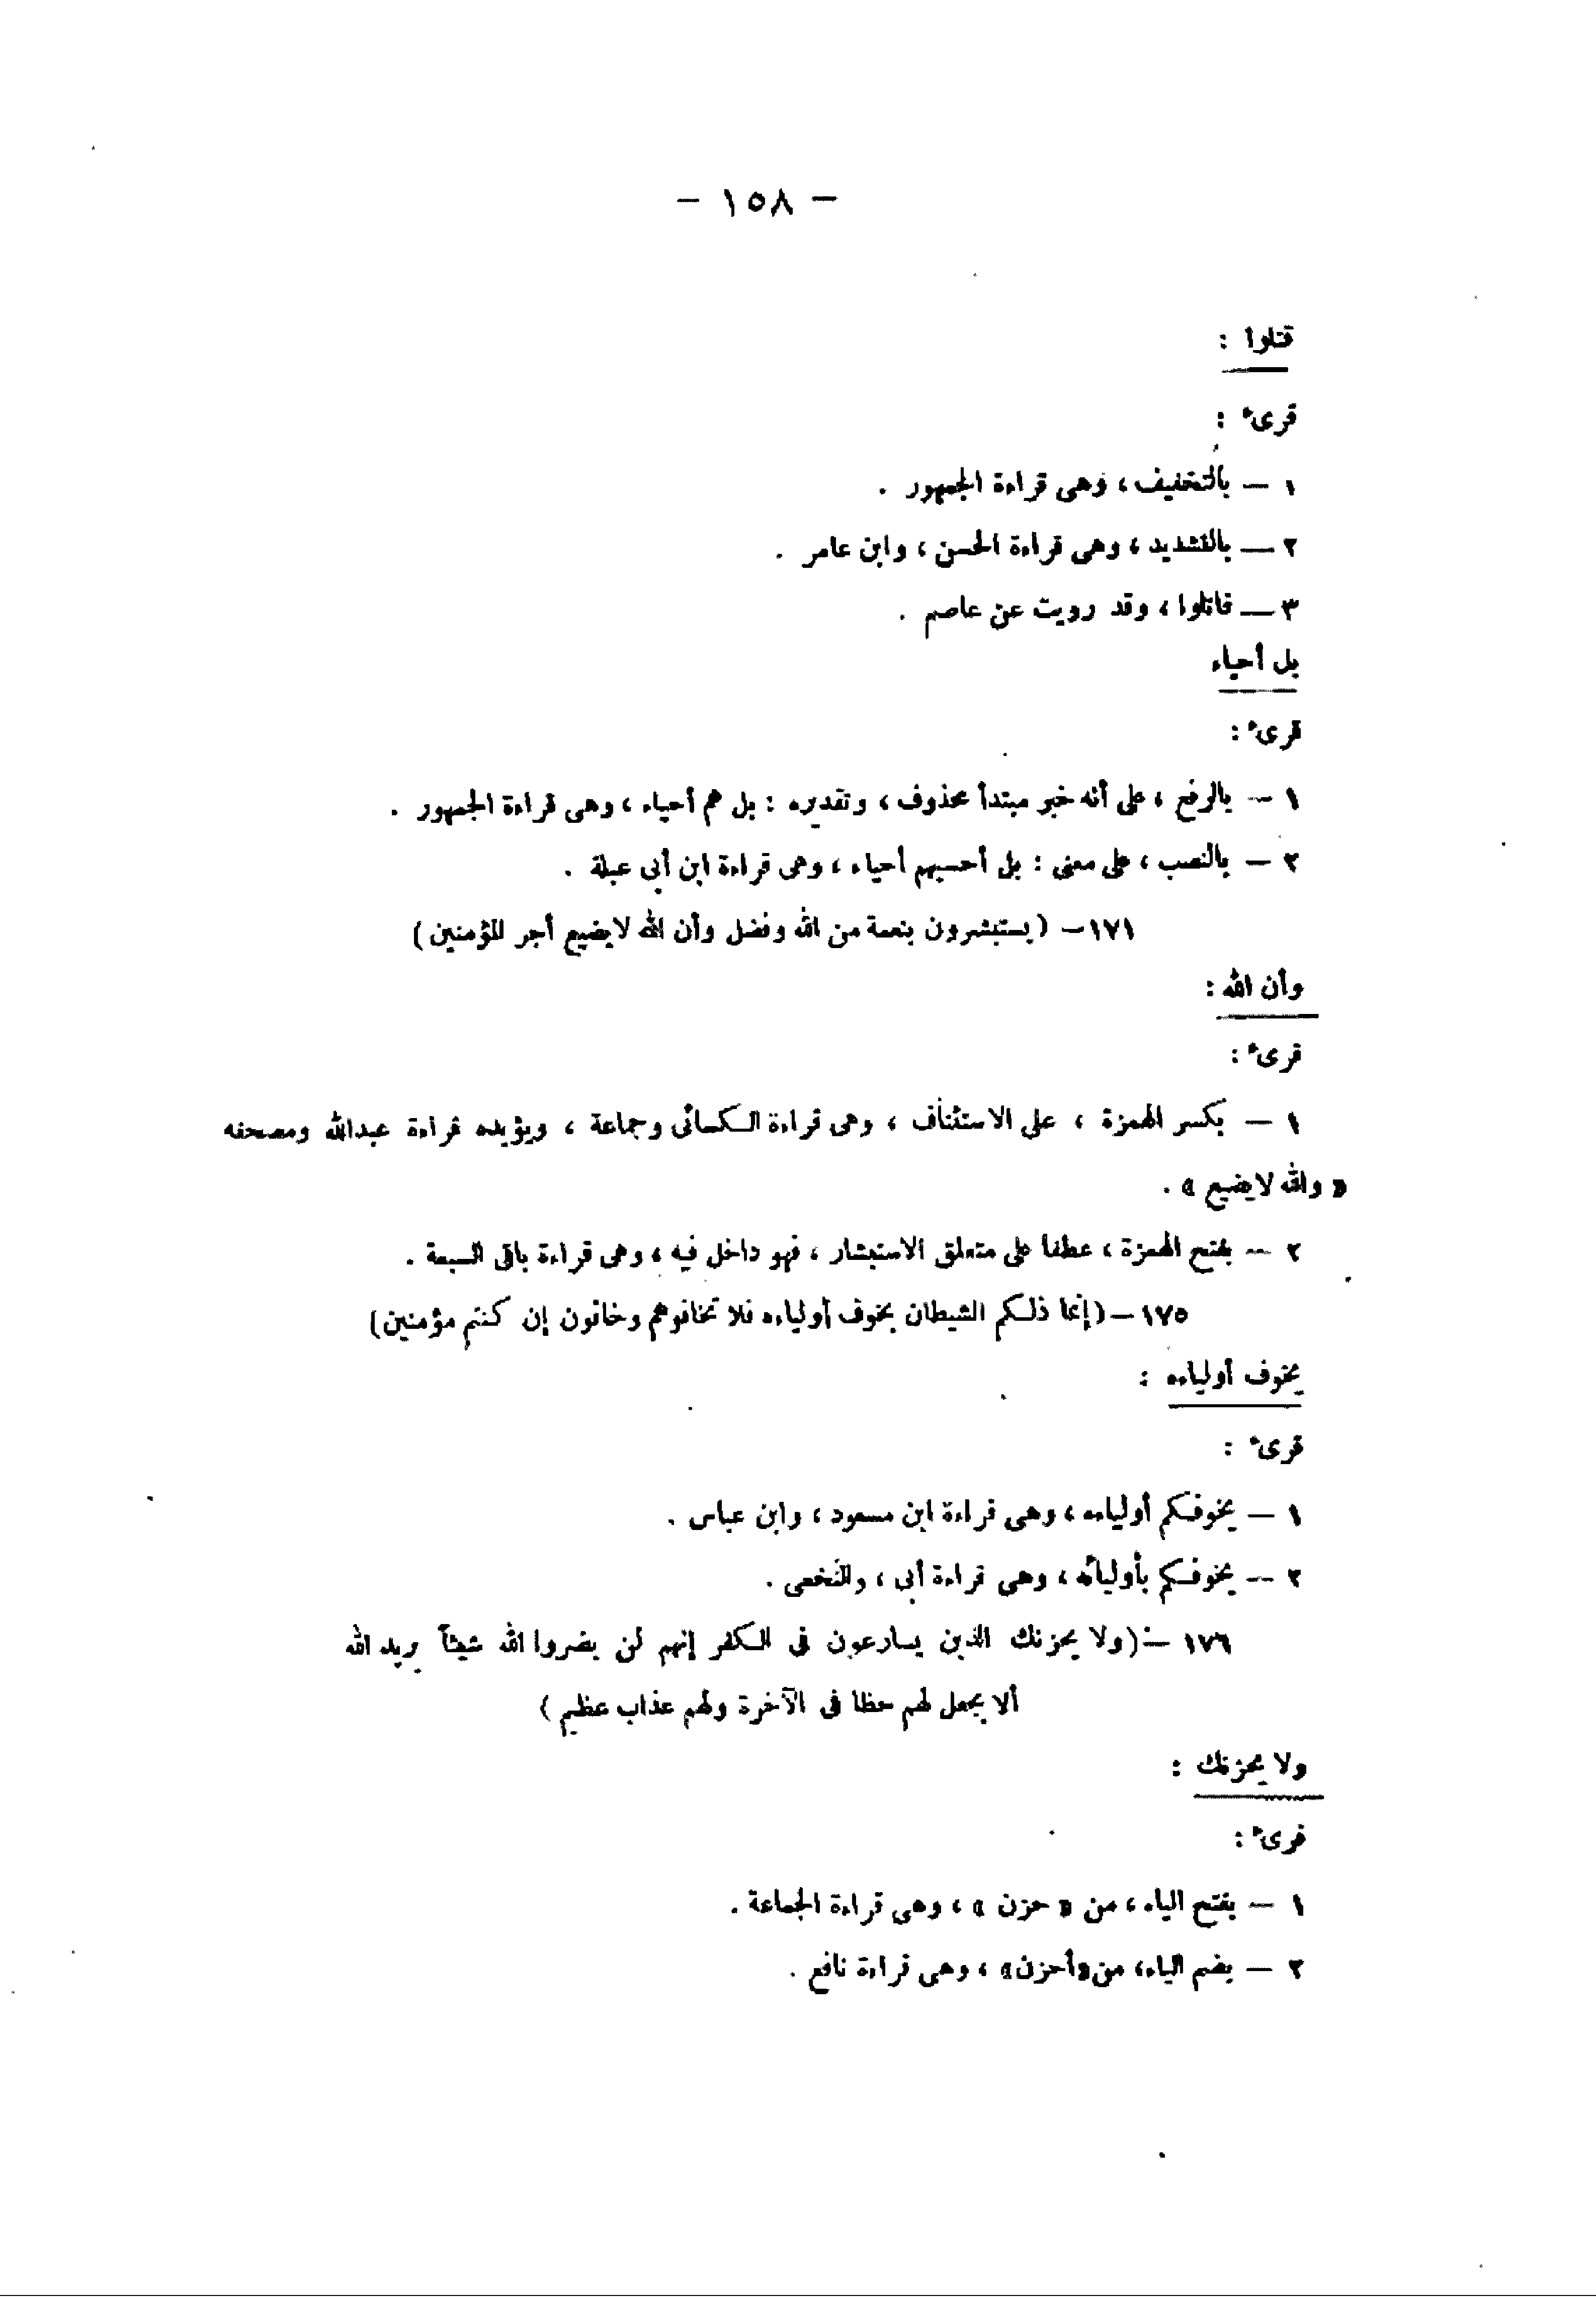 — ١٥٨ —
قتلوا :
قرىء :
١ — بالتخفيف ، وهى قراءة الجمهور .
٢ — بالتشديد ، وهى قراءة الحسن ، وابن عامر .
٣ — قاتلوا ، وقد رويت عن عاصم .
بل أحياء
قرىء :
١ — بالرفع ، على أنه خبر مبتدأ محذوف ، وتقديره : بل هم أحياء ، وهى قراءة الجمهور .
٢ — بالنصب ، على معنى : بل أحسبهم أحياء ، وهى قراءة ابن أبى عبلة .
١٧١ — (يستبشرون بنعمة من الله وفضل وأن الله لا يضيع أجر المؤمنين)
وأن الله :
قرىء :
١ — بكسر الهمزة ، على الاستئناف ، وهى قراءة الكسائى وجماعة ، ويؤيده قراءة عبدالله ومصحفه
« والله لا يضيع » .
٢ — بفتح الهمزة ، عطفا على متعلق الاستبشار ، فهو داخل فيه ، وهى قراءة باقى السبعة .
١٧٥ — (إنما ذلكم الشيطان يخوف أولياءه فلا تخافوهم وخافون إن كنتم مؤمنين)
يخوف أولياءه :
قرىء :
١ — يخوفكم أولياءه ، وهى قراءة ابن مسعود ، وابن عباس .
٢ — يخوفكم بأوليائه ، وهى قراءة أبى ، والنخعى .
١٧٦ — (ولا يحزنك الذين يسارعون فى الكفر إنهم لن يضروا الله شيئاً يريد الله
ألا يجعل لهم حظا فى الآخرة ولهم عذاب عظيم )
ولا يحزنك :
قرىء :
١ — بفتح الياء ، من « حزن » ، وهى قراءة الجماعة .
٢ — بضم الياء ، من «أحزن» ، وهى قراءة نافع .